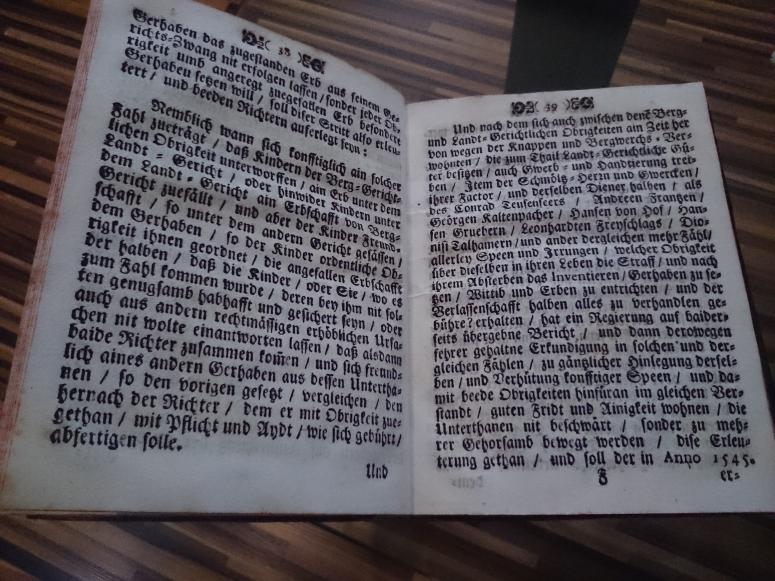 38
Gerhaben das zugestanden Erb aus seinem Ge-
richts-Zwang nit erfolgen lassen / sonder jeder Ob-
rigkeit umb angeregt zuegefallen Erb besondere
Gerhaben setzen will / soll diser Stritt also erleu-
tert / und beeden Richtern auferlegt seyn:
Nemblich wann sich konfftiglich ain solcher
Fahl zueträgt / daß Kindern der Berg-Gericht-
lichen Obrigkeit unterworffen / ain Erb unter dem
Landt-Gericht / oder hinwider Kindern unter
dem Landt-Gericht ain Erbschafft von Berg-
Gericht zuefällt / und aber der Kinder Freund-
schafft / so unter dem andern Gericht gesässen /
dem Gerhaben / so der Kinder ordentliche Ob-
rigkeit ihnen geordnet / die angefallen Erbschafft
der halben / daß die Kinder / oder Sie / wo es
zum Fahl kommen wurde / deren bey ihm nit sol-
ten genugsamb habhafft und gesichert seyn / oder
auch aus andern rechtmässigen erhöblichen Ursa-
chen nit wolte einantworten lassen / daß alsdann
baide Richter zusammen kom̄en / und sich freund-
lich aines andern Gerhaben aus dessen Untertha-
nen / so den vorigen gesetzt / vergleichen / den
hernach der Richter / dem er mit Obrigkeit zue-
gethan / mit Pflicht und Aydt / wie sich gebührt /
abfertigen solle.
Und
39
Und nach dem sich auch zwischen denẽ Berg-
und Landt-Gerichtlichen Obrigkeiten am Zeit her
von wegen der Knappen und Bergwerchs-Ver-
wohnten / die zum Thail Landt-Gerichtliche Gü-
ter besitzen / auch Gwerb- und Handtierung trei-
ben / Item der Schmöltz-Herrn und Gwercken /
ihrer Factor / und derselben Diener halben / als
des Conrad / Andreen Frantzen /
Geörgen Kaltenpacher / Hansen von Hof / Han-
sen Gruebern / Leonhardten Freyschlags / Dio-
nisi Talhamern / und ander dergleichen mehr Fähl /
allerley Speen und Irrungen / welcher Obrigkeit
über dieselben in ihren Leben die Straff / und nach
ihrem Absterben das inventieren / Gerhaben zu se-
tzen / Wittib und Erben zu entrichten / und der
Verlassenschafft halben alles zu verhandlen ge-
bühre? erhalten / hat ein Regierung auf baider-
seits übergebne Bericht / und dann derowegen
fehrer gehaltne Erkundigung in solchen und der-
gleichen Fählen / zu gäntzlicher Hinlegung dersel-
ben / und Verhütung konfftiger Speen / und da-
mit beede Obrigkeiten hinfüran im gleichen Ver-
standt / guten Fridt und Ainigkeit wohnen / die
Unterthanen nit beschwärt / sonder zu meh-
rer Gehorsamb bewegt werden / dise Erleu-
terung gethan / und soll der in Anno 1545.
F
er-